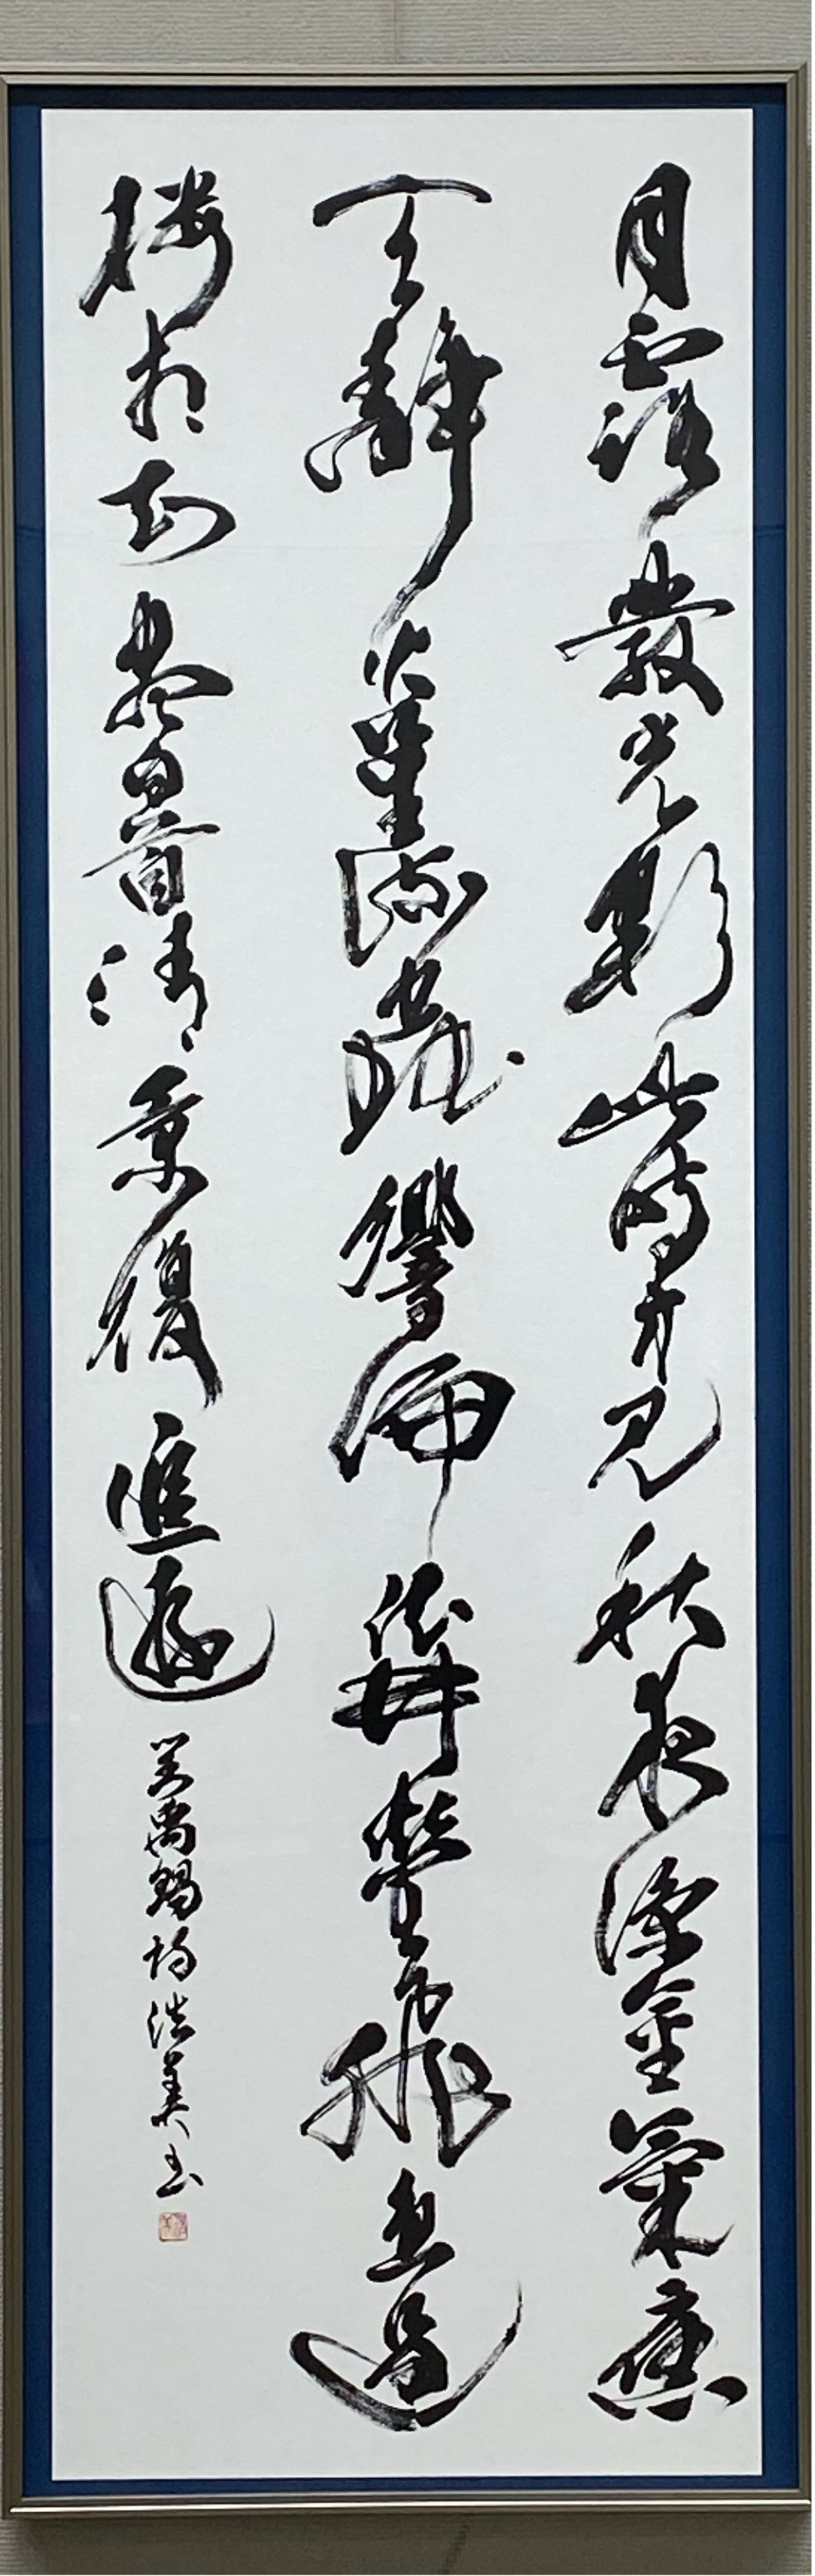 月露發光彩此時方見秋夜涼金氣應
天静火星流蛩響偏依井螢飛直過
楼相知盡白首清景復追遊 劉禹錫詩 浩美書